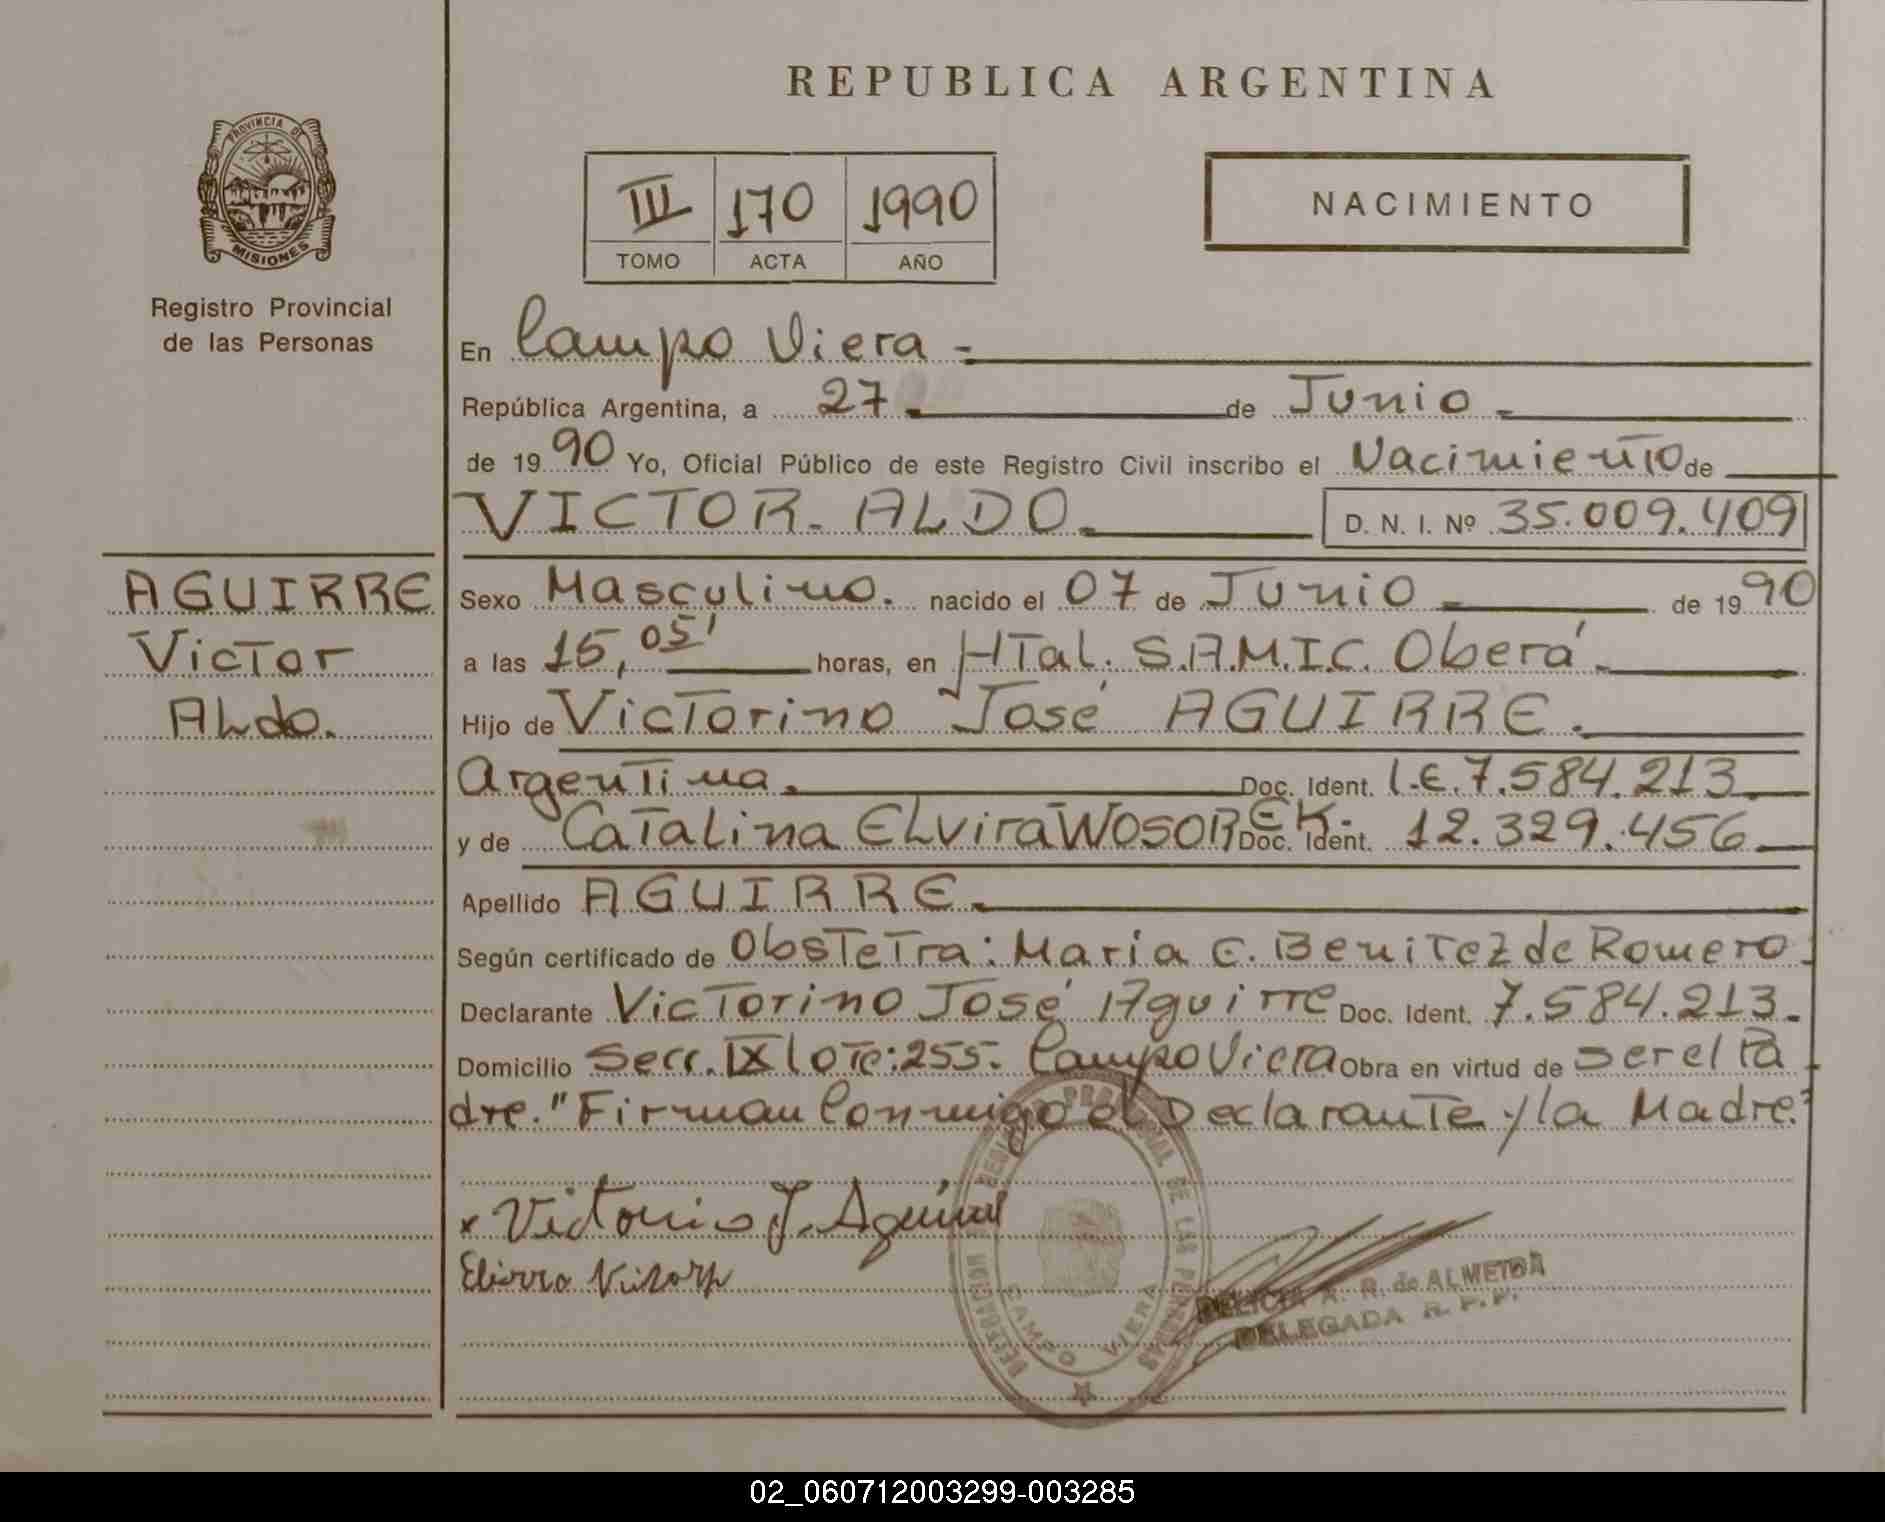 REPUBLICA ARGENTINA
PROVINCIA DE
MISIONES
Registro Provincial
de las Personas
III 170 1990
TOMO ACTA AÑO
NACIMIENTO
En Campo Viera -
República Argentina, a 27 de Junio
de 1990 Yo, Oficial Público de este Registro Civil inscribo el Nacimiento de
VICTOR ALDO D. N. I. Nº 35.009.409
AGUIRRE
Victor
ALdo.
Sexo Masculino. nacido el 07 de Junio de 1990
a las 15,05' horas, en HTal. S.A.M.I.C. Oberá
Hijo de Victorino José AGUIRRE.
Argentina. Doc. Ident. L.E. 7.584.213
y de Catalina ELvira WOSOREK. Doc. Ident. 12.329.456
Apellido AGUIRRE
Según certificado de Obstetra: Maria E. Benitez de Romero
Declarante Victorino José Aguirre Doc. Ident. 7.584.213.
Domicilio Secc. IX Lote: 255. Campo Viera Obra en virtud de ser el Pa
dre. "Firman Conmigo el Declarante y la Madre."
x Victorio J. Aguirre
CAMPO VIERA
R. de ALMEIDA
DELEGADA R. P. P.
02_060712003299-003285